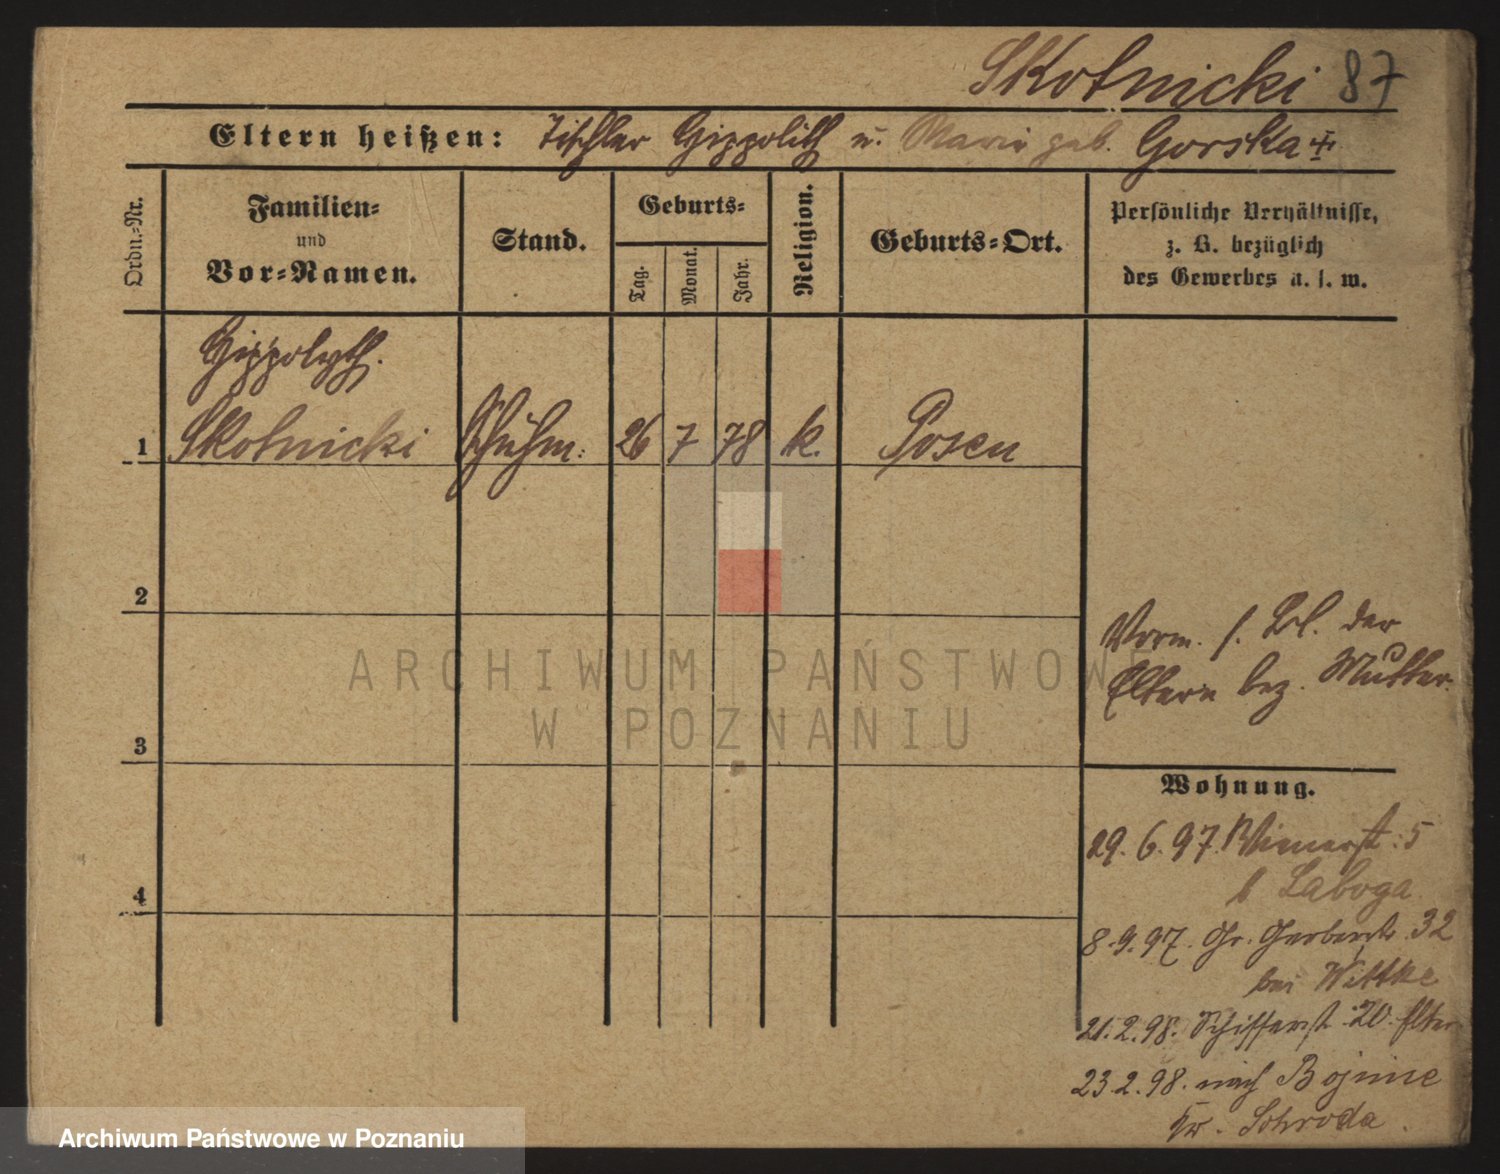 Skotnicki 87
Eltern heißen: Tischler Hippolith u. Marie geb. Gorska
Ordn.-Nr.
Familien-
und
Vor-Namen.
Stand.
Geburts-
Tag.
Monat.
Jahr.
Religion.
Geburts-Ort.
Persönliche Verhältnisse,
z. B. bezüglich
des Gewerbes u. s. w.
Hippolyth.
1 Skotnicki Schuhm: 26 7 78 k. Posen
2
3
4
Vorm. s. Bl. der
Eltern bez. Mutter.
Wohnung.
29.6.97. 5
b Laboga
8.9.97. Gr. Gerberstr. 32
bei Wittke
21.2.98. Schifferst. 20. Elter
23.2.98. nach Bojnice
Kr. Schroda.
ARCHIWUM PAŃSTWOWE
W POZNANIU
Archiwum Państwowe w Poznaniu